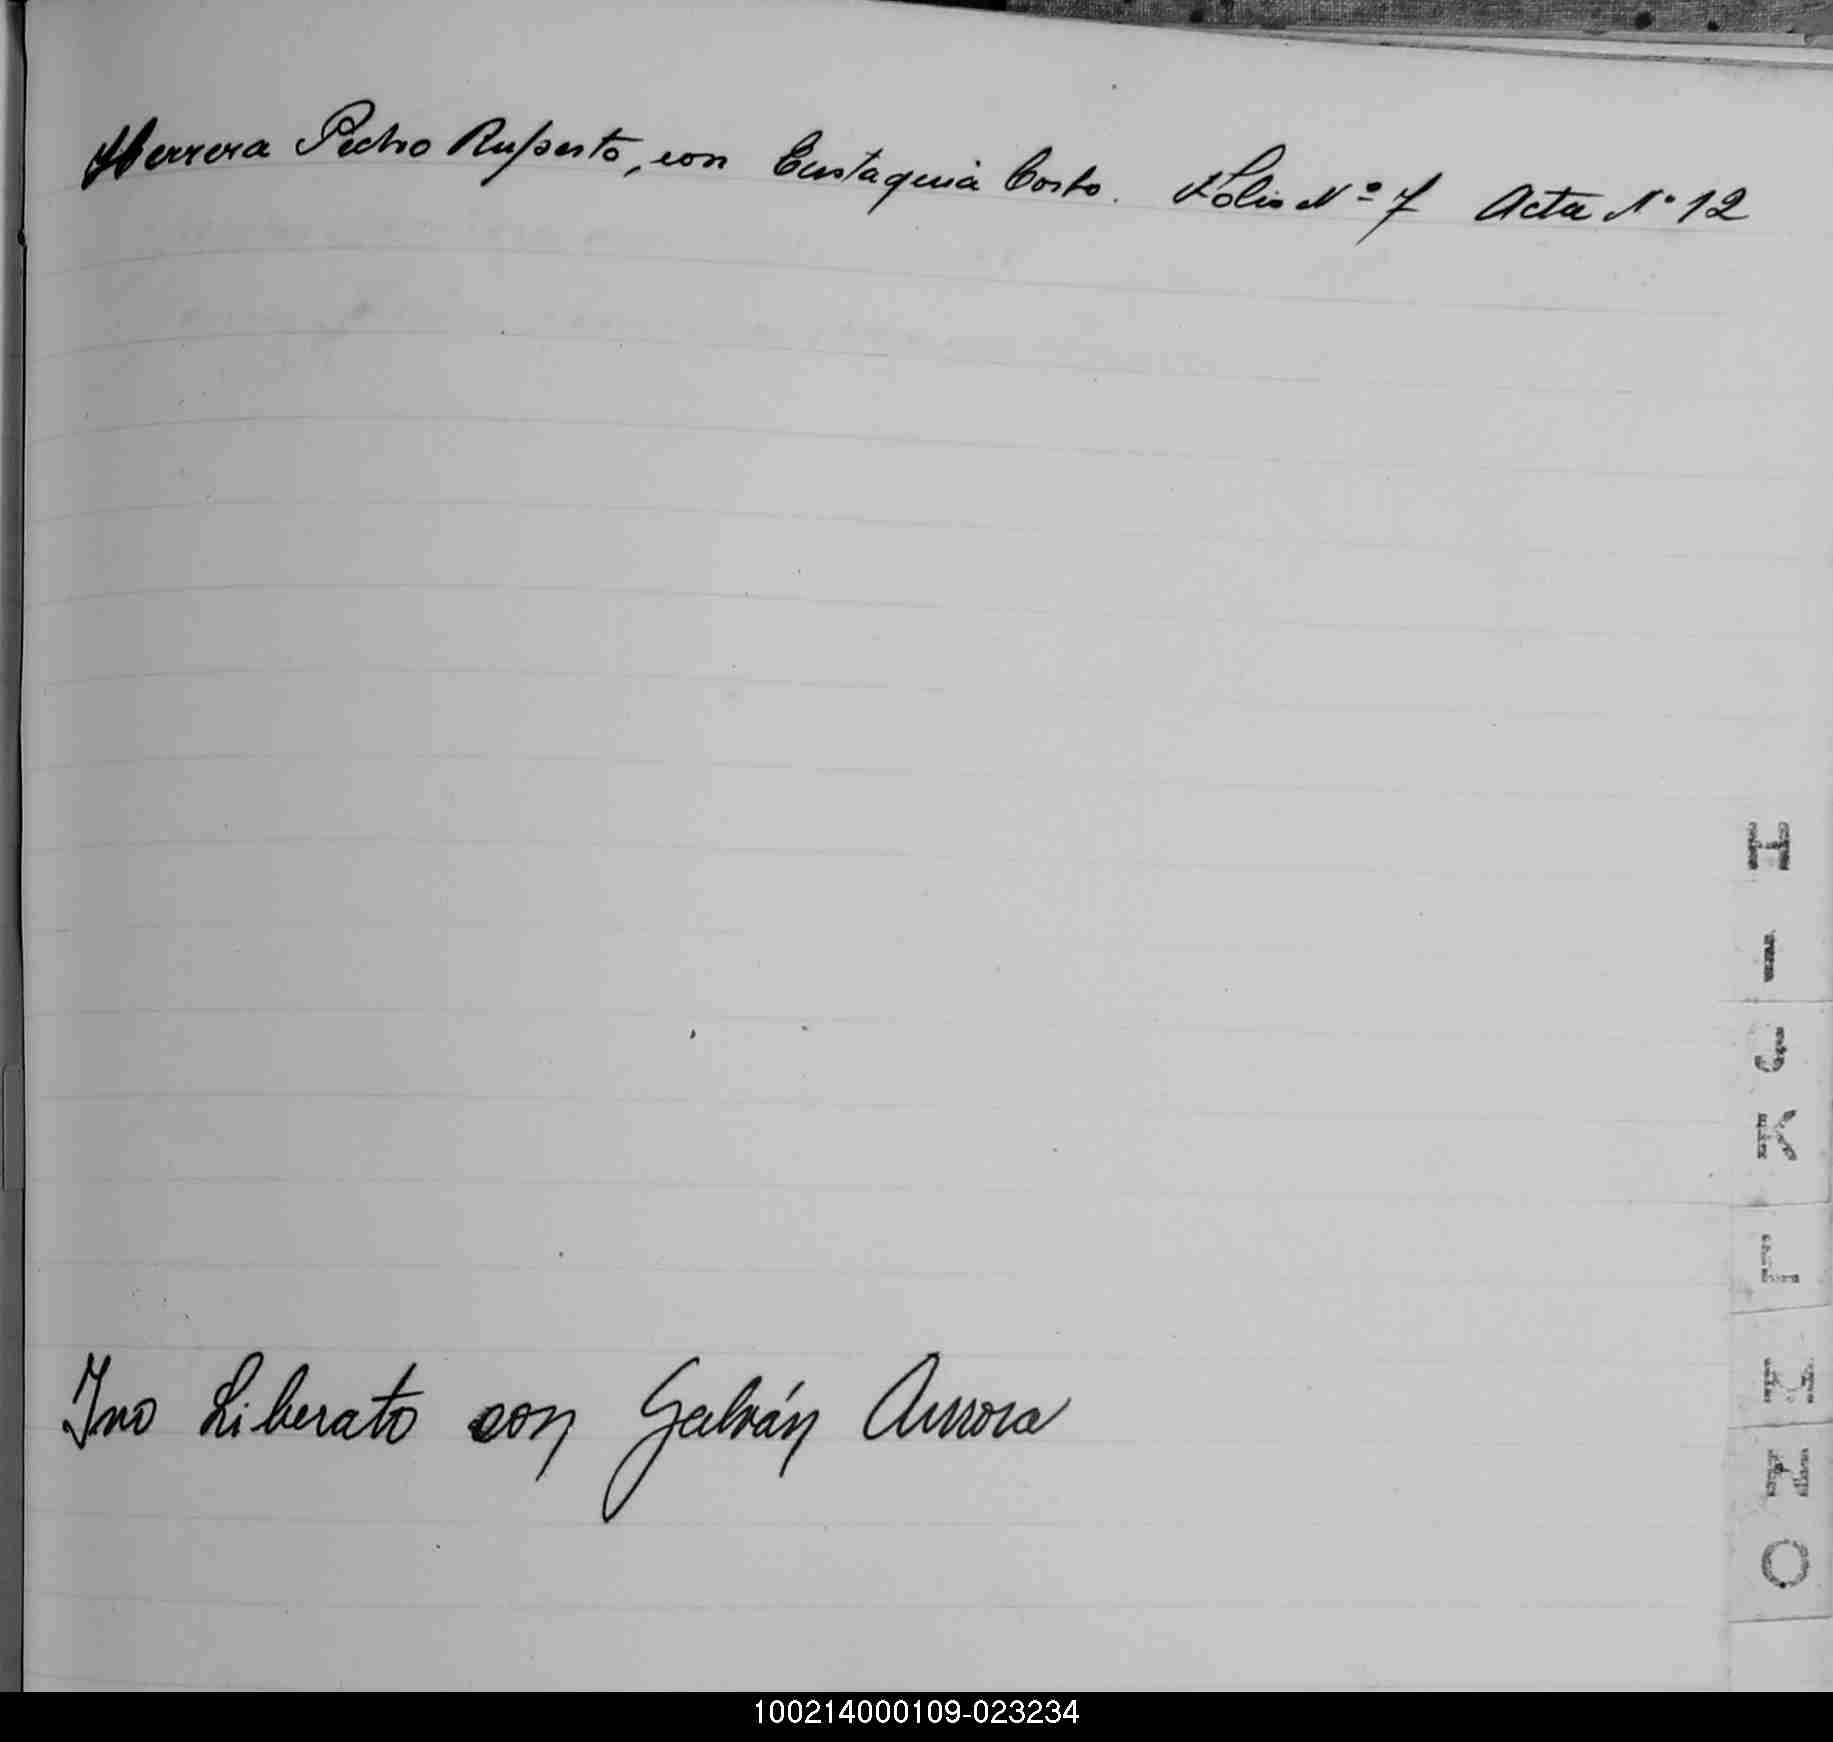 Herrera Pedro Ruperto, con Eustaquia Costo. Folio Nº 7 Acta Nº 12
H
I
J
K
L
M
N
O
Ino Liberato con Galván Aurora
100214000109-023234